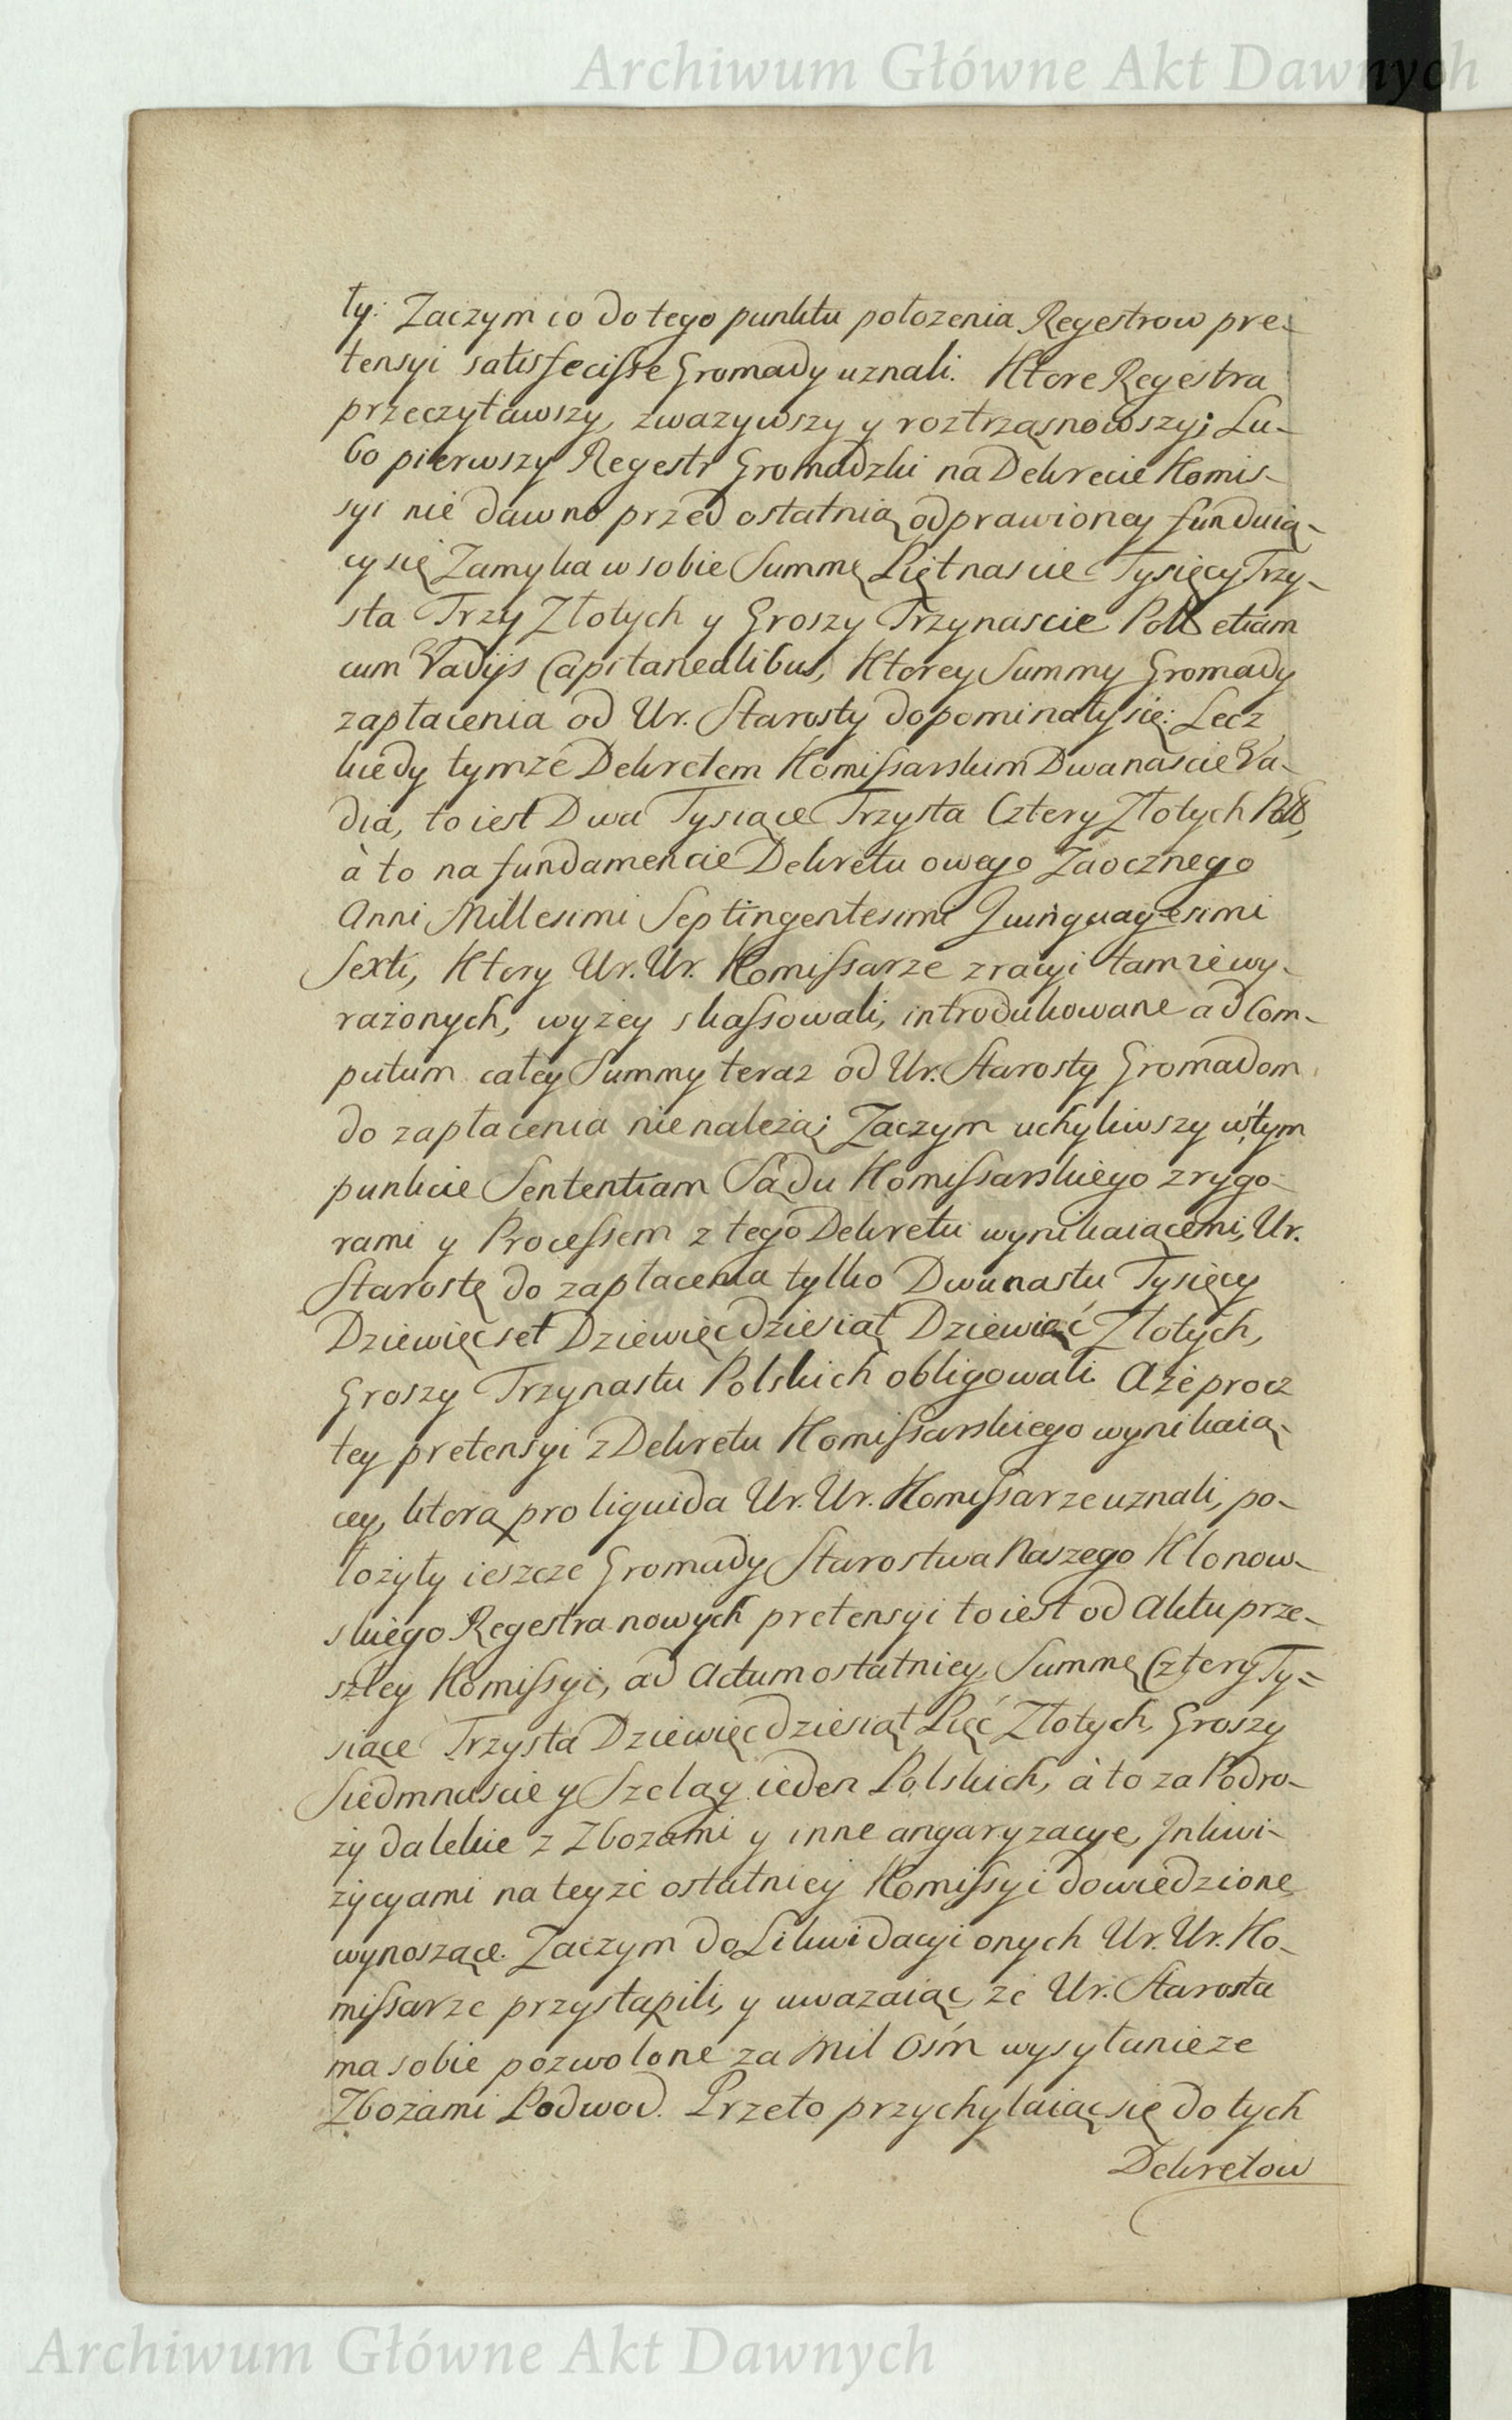 Archiwum Główne Akt Dawnych
ły: Zaczym co do tego punktu położenia Regestrow pre-
tensyi satisfecisse Gromady uznali. Ktore Regestra
przeczytawszy, zwazywszy y roztrząsnowszy; Lu-
bo pierwszy Regestr Gromadzki na Dekrecie Komis-
syi nie dawno przed ostatnią odprawioney funduią-
cy się Zamyka w sobie Summę Piętnascie Tysięcy Trzy-
sta Trzy Złotych y Groszy Trzynascie Poll etiam
cum Vadijs Capitanealibus, Ktorey Summy Gromady
zapłacenia od Ur. Starosty dopominały się: Lecz
kiedy tymże Dekretem Komissarskim Dwanascie Va-
dia, to iest Dwa Tysiące Trzysta Cztery Złotych Poll,
à to na fundamencie Dekretu owego Zaocznego
Anni Millesimi Septingentesimi Quinquagesimi
Sexti, Ktory Ur. Ur. Komissarze z racyi tamże wy-
rażonych, wyżey skassowali, introdukowane ad Com-
putum całey Summy teraz od Ur. Starosty Gromadom
do zapłacenia nienależą; Zaczym uchyliwszy w tym
punkcie Sententiam Sądu Komissarskiego z rygo-
rami y Processem z tego Dekretu wynikaiącemi, Ur.
Starostę do zapłacenia tylko Dwunastu Tysięcy
Dziewięcset Dziewięcdziesiąt Dziewięć Złotych,
Groszy Trzynastu Polskich obligowali. A że procz
tey pretensyi z Dekretu Komissarskiego wynikaią-
cey, ktorą pro liquida Ur. Ur. Komissarze uznali, po-
łożyły ieszcze Gromady Starostwa Naszego Klonow-
skiego Regestra nowych pretensyi to iest od Aktu prze-
szłey Komissyi, ad Actum ostatniey, Summę Cztery Ty=
siące Trzysta Dziewięcdziesiąt Pięć Złotych, Groszy
Siedmnascie y Szeląg ieden Polskich, à to za Podro-
ży dalekie z Zbozami y inne angaryzacye, Inkwi-
zycyami na teyże ostatniey Komissyi dowiedzione
wynoszące. Zaczym do Likwidacyi onych Ur. Ur. Ko-
missarze przystąpili, y uwazaiąc, że Ur. Starosta
ma sobie pozwolone za Mil Ośm wysyłanie ze
Zbożami Podwod. Przeto przychylaiąc się do tych
Dekretow
Archiwum Główne Akt Dawnych